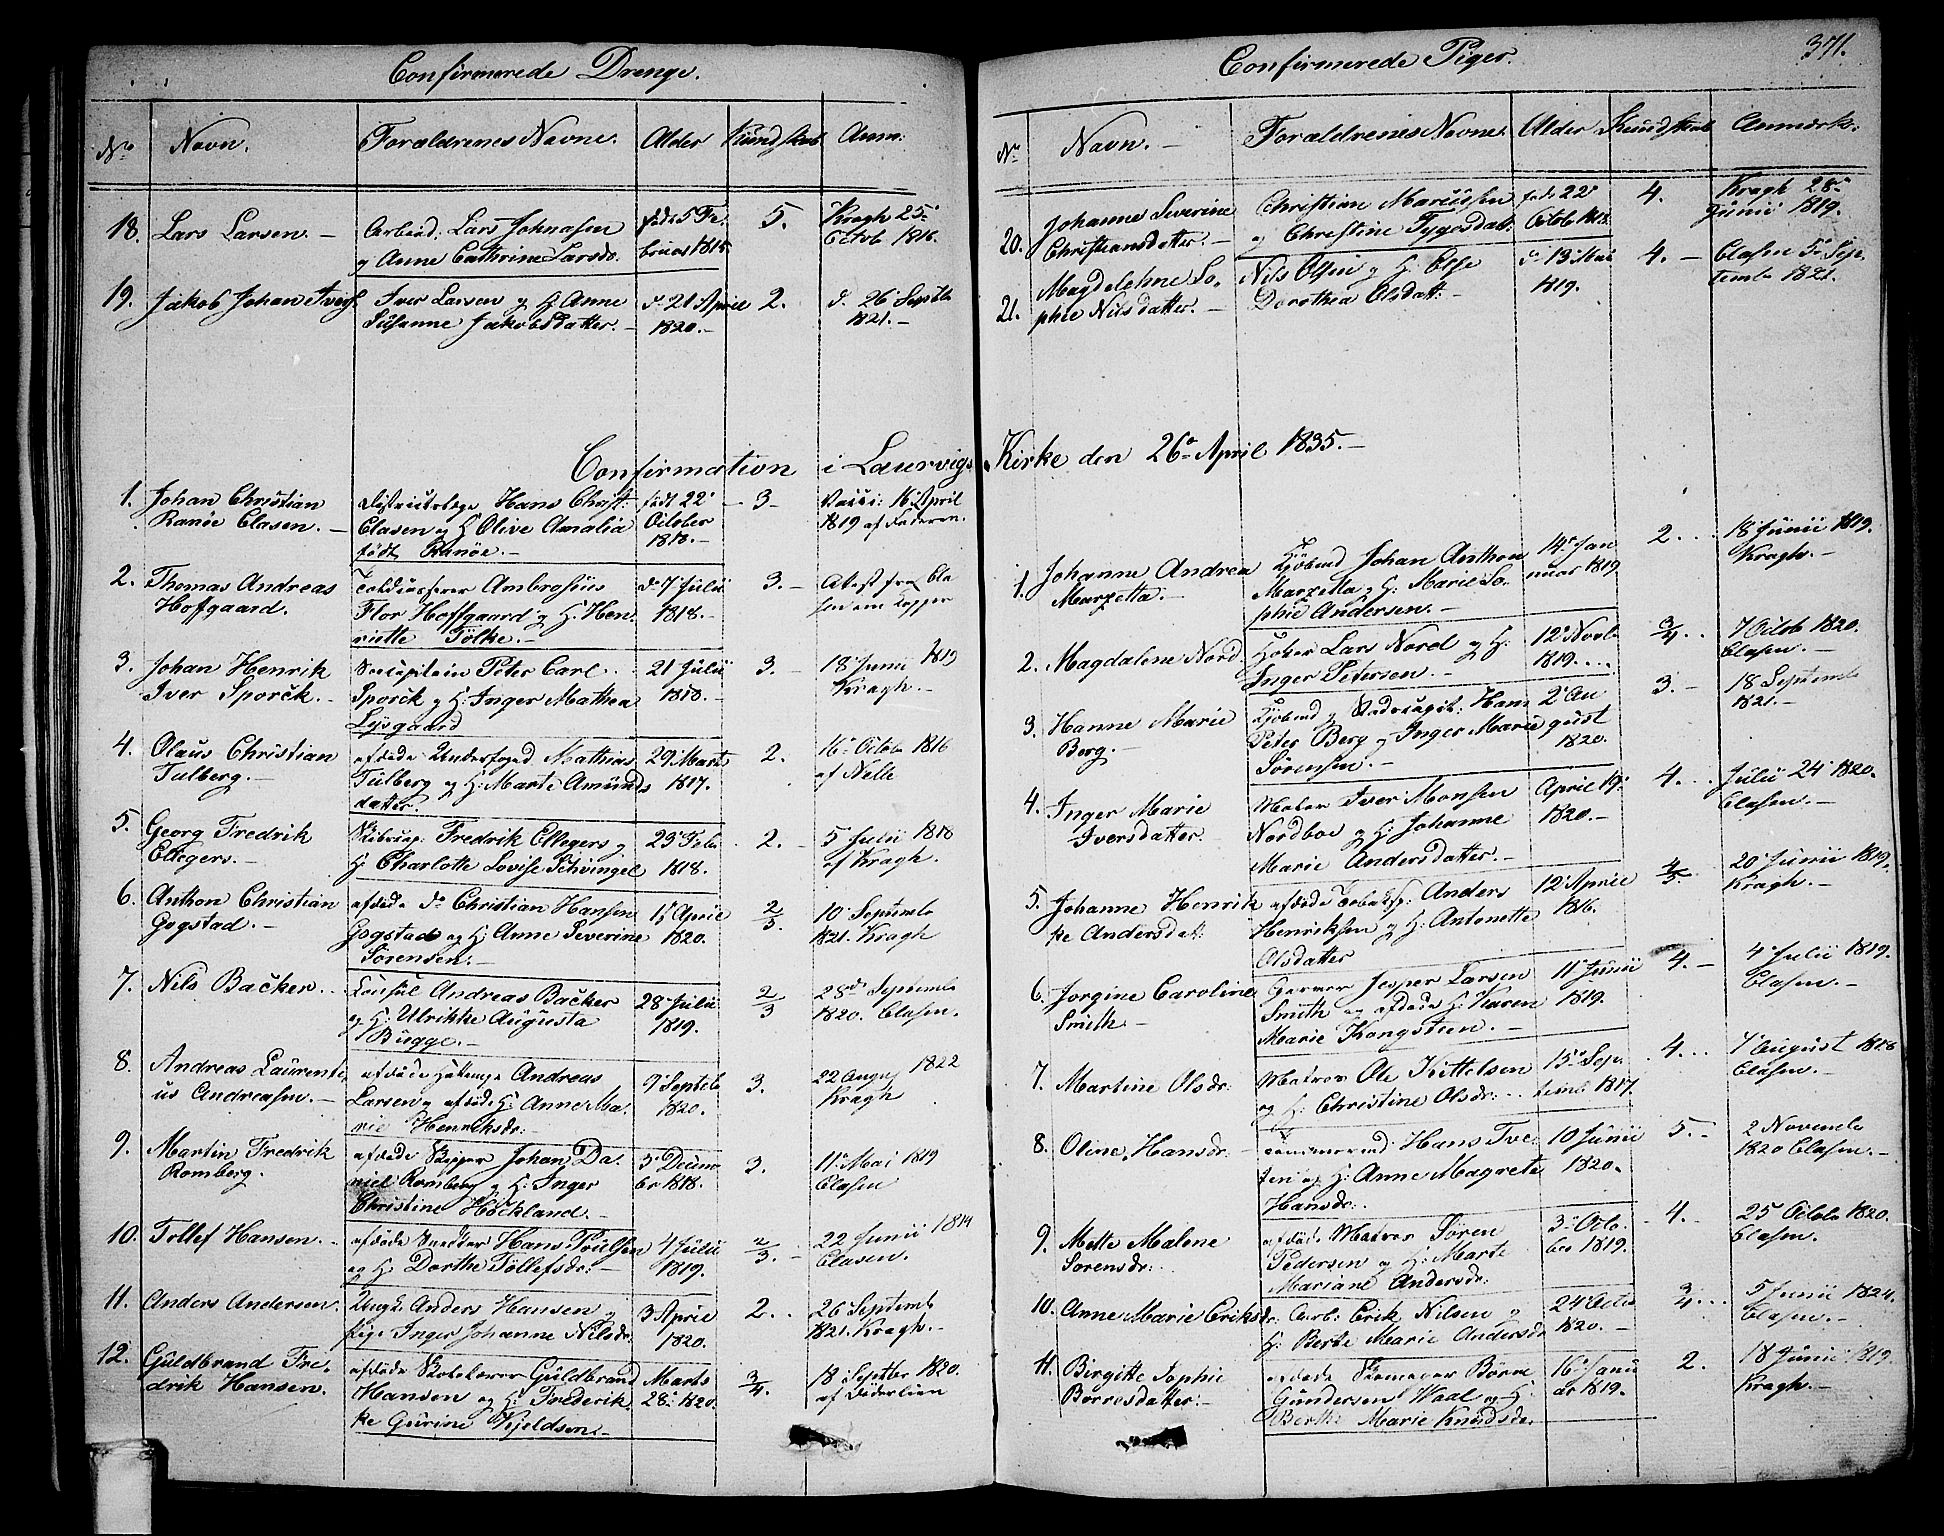 Confirmerede Drenge.
No Navn. Forældrenes Navne. Alder Kundskab Anm:
18. Lars Larsen. Arbeid. Lars Johnasen født 5 Fe- 5. Kragh 25
og Anne Cathrine Larsd. bruar 1815 Octob 1816.
19. Jakob Johan Ivers Iver Larsen og H. Anne do 21 April 2. d. 26 Septb
Susanne Jakobsdatter. 1820. 1821.
Confirmation i Laurvigs
1. Johan Christian Districtslæge Hans Christ: født 22 3 Vacci: 16 April
Ranöe Clasen. Clasen og H. Olive Amalia October 1819 af Faderen.
født Ranöe. 1818.
2. Thomas Andreas Ambrosius do 7 Julii 3. Attest fra Cla
Hofgaard. Flor Hoffgaard og H. Hen- 1818. sen om Kopper
riette Tölke.
3. Johan Henrik Peter Carl 21 Julii 3. 18 Junii 1819
Iver Sporck. Sporck og H: Inger Mathea 1818. Kragh.
Lysgaard
4. Olaus Christian afdøde Underfoged Mathias 29 Marts 2. 16 Octob 1816
Tulberg. Tulberg og H: Marte Amunds 1817. af Nelle
datter.
5. Georg Fredrik Skibscap. Fredrik Ellegers og 23 Feb 2. 5 Julii 1818
Ellegers. H. Charlotte Lovise Schvingel 1818. af Kragh.
6. Anthon Christian afdøde do Christian Hansen 15 April 2/3. 10 Septemb
Gogstad. Gogstad og H: Anne Severine 1820. 1821. Kragh
Sörensen.
7. Nils Backer Consul Andreas Backer 28 Julii 2/3 Septemb
og H: Ulrikke Augusta 1819. 1820. Clasen.
Bugge.
8. Andreas Laurenti- afdøde Andreas 9 Septb 3. 22 Augus 1822
us Andreasen. Larsen og afdøde H: Anne Ma- 1820. Kragh
rie Henriksdr:
9. Martin Fredrik afdøde Skipper Johan Da- 3 Decem- 3. 11 Mai 1819
Romberg. niel Romberg og H: Inger ber 1818. Clasen
Christine Höckland.
10. Tollef Hansen. afdøde Snedker Hans Poulsen 4 Julii 2/3. 22 Junii 1819
og H. Dorthe Tollefsdr: 1819. Clasen.
11. Anders Andersen. Ungk. Anders Hansen og 3 April 2. 26 Septemb
pige Inger Johanne Nilsdr: 1820. 1821. Kragh.
12. Guldbrand Fre- afdøde Skolelærer Guldbrand Marts 3/4. 18 Septber 1820.
drik Hansen. Hansen og H: Frederik- 28 1820. af Döderlien
ke Gurine Kjeldsen.
Confirmerede Piger. 371.
No Navn. Forældrenes Navne. Alder Kundskab Anmærk:
20. Johanne Severine Christian Marcussen født 22 4. Kragh 28
Christiansdatter. og Christine Tygesdat: Octob 1818. Junii 1819.
21. Magdelehne So- Nils Olsen og H: Else do 13 Mai 4. Clasen 5 Sep-
phie Nilsdatter. Dorothea Olsdatt: 1819. temb 1821.
Kirke den 26 April 1835.
1. Johanne Andrea Kjøbmd Johan Anthon 14 Jan 2 18 Junii 1819.
Marzetta. Marzetta og H: Marie So- nuar 1819 Kragh.
phie Andersen.
2. Magdalene Nord. Høker Lars Nord og H: 12 Novb 3/4 7 Octob 1820.
Inger Petersen. 1819. Clasen.
3. Hanne Marie Kjøbmd og Hans 2 Au 3. 18 Septemb
Berg. Peter Berg og Inger Marie gust 1821.
Sørensen. 1820.
4. Inger Marie Iver Monsen April 19 4. Julii 24 1820.
Iversdatter. Nordboe og H: Johanne 1820. Clasen.
Marie Andersdatter.
5. Johanne Henrik- afdøde Anders 12 April 4/5. 20 Junii 1819.
ke Andersdat: Henriksen og H: Antonette 1816. Kragh.
Olsdatter
6. Jorgine Caroline Jesper Larsen 11 Junii 4. 4 Julii 1819.
Smith Smith og afdøde H: Karen 1819. Clasen.
Marie Kongsteen.
7. Martine Olsdr: Matros Ole Kittelsen 15 Sep- 4. 7 August 1818
og H: Christine Olsdr: temb 1817. Clasen.
8. Oline Hansdr: Hans Tve- 10 Junii 5. 2 Novemb
ten og H: Anne Magrete 1820. 1820 Clasen.
Hansdr:
9. Mette Malene afdøde Matros Sören 3 Octo- 4. 25 Octob 1820.
Sorensdr: Pedersen og H: Marte ber 1819. Clasen.
Mariane Andersdr:
10. Anne Marie Eriksdr: Arb: Erik Nilsen og 24 Octo 3/4. 5 Junii 1824.
H: Berte Marie Andersdr 1820. Clasen.
11. Birgitte Sophie afdøde Skomager Börre 16 Janu 2. 18 Junii 1819.
Börresdatter. Gundersen Waal og H: ar 1819. Kragh.
Berthe Marie Knudsdr.